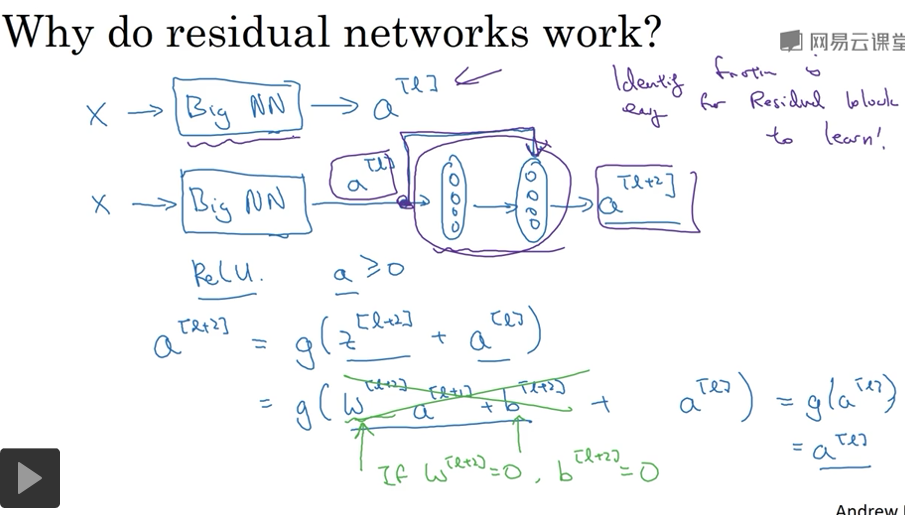 Why do residual networks work?
网易云课堂
X → Big NN → a^[l]
Identity function is
easy for Residual block
to learn!
X → Big NN a^[l] → a^[l+2]
ReLU. a ≥ 0
a^[l+2] = g(z^[l+2] + a^[l])
= g(W^[l+2] a^[l+1] + b^[l+2] + a^[l]) = g(a^[l])
= a^[l]
If W^[l+2] = 0, b^[l+2] = 0
Andrew